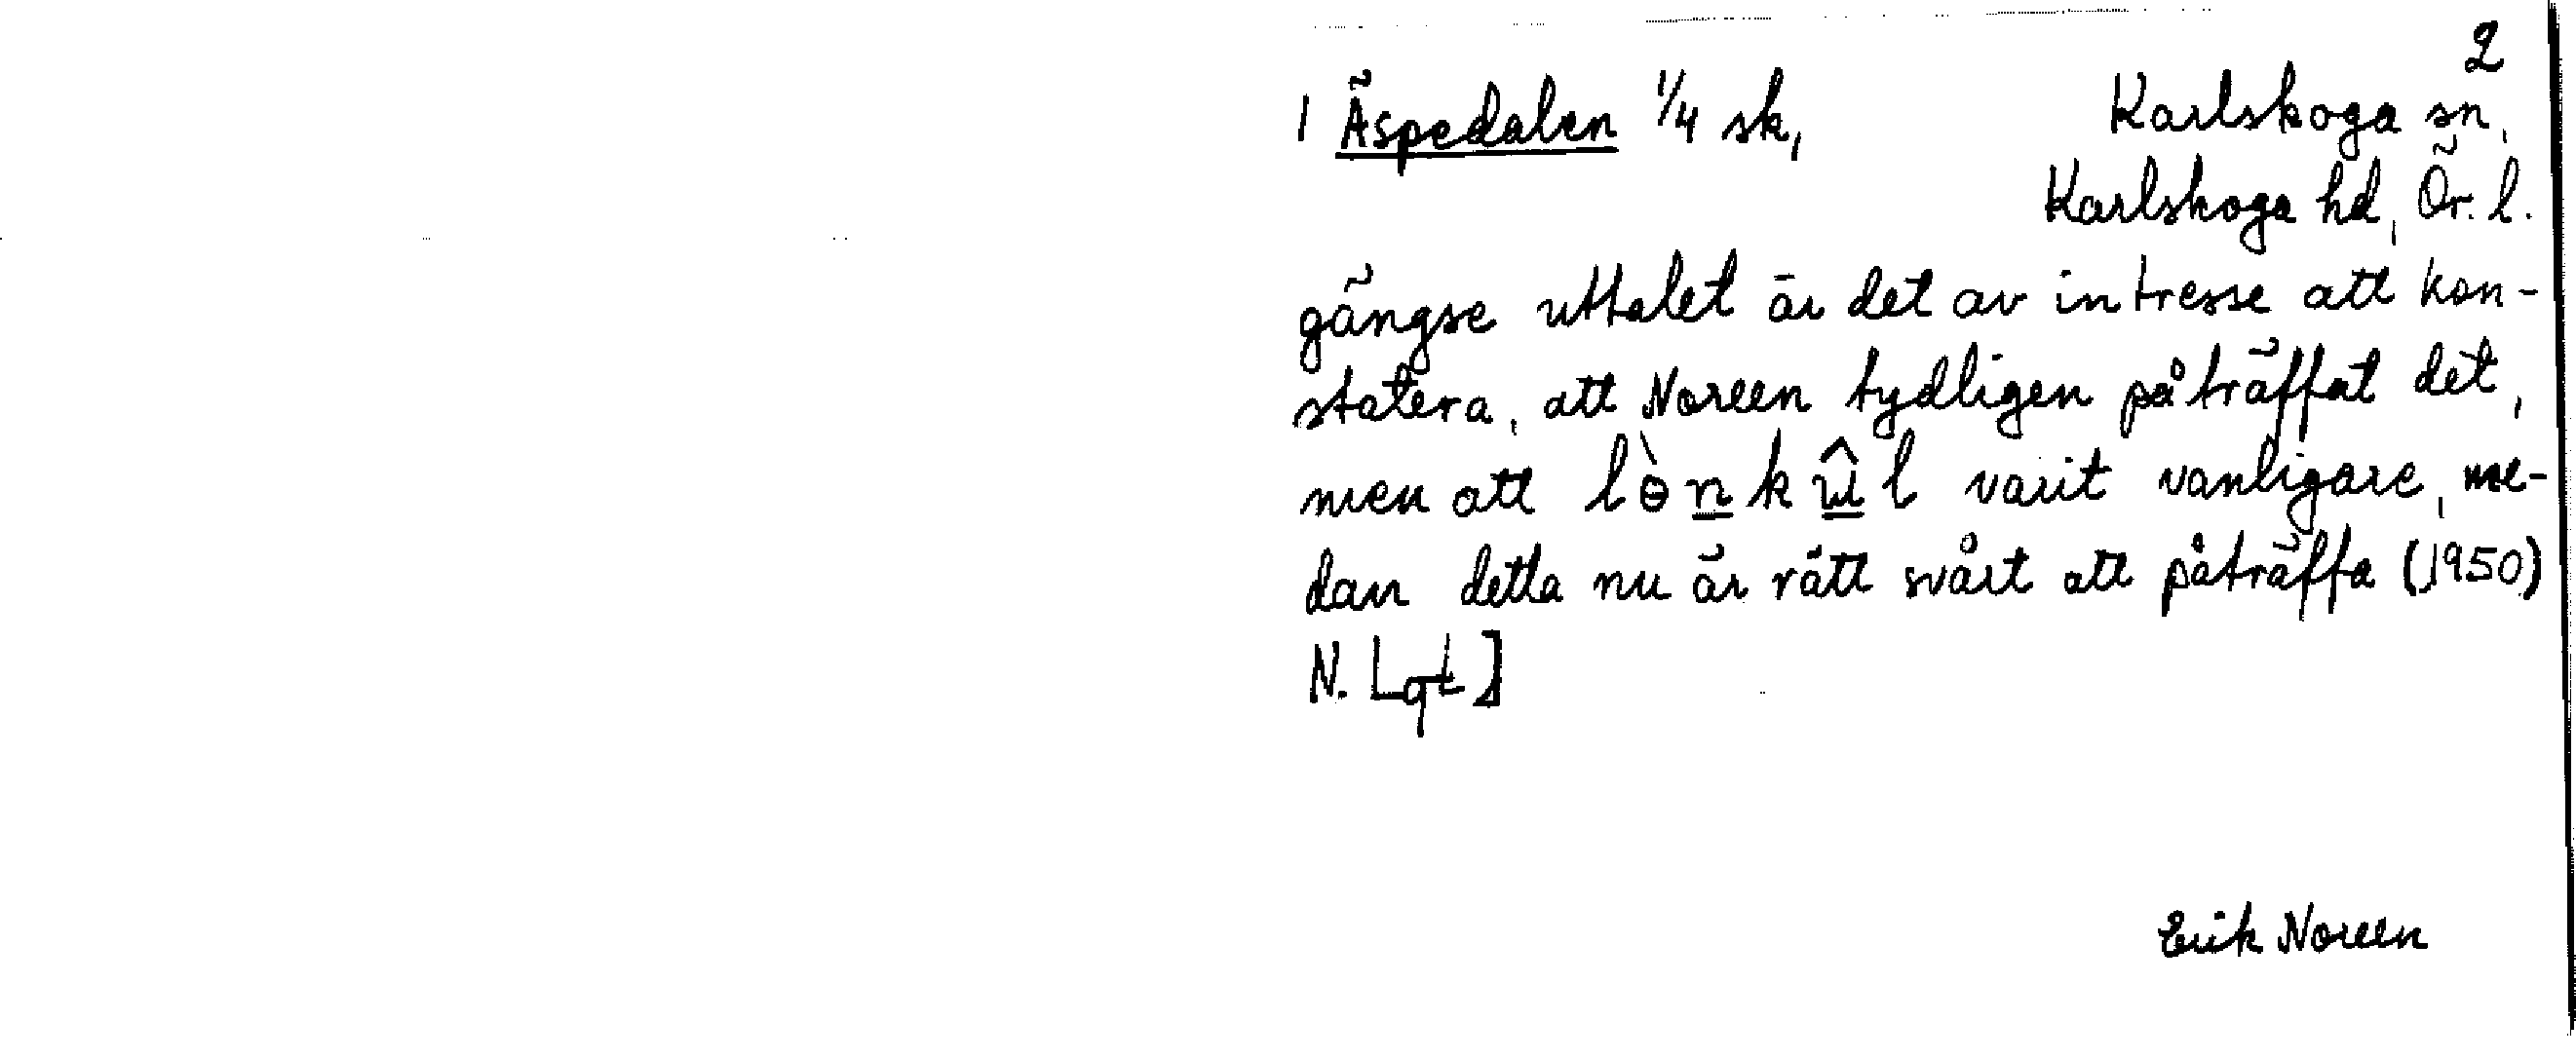 2
1 Äspedalen 1/4 sk, Karlskoga sn,
Karlskoga hd, Ör. l.
gängse uttalet är det av intresse att kon-
statera, att Noreen tydligen påträffat det,
men att lɵ̀nkûl varit vanligare, me-
dan detta nu är rätt svårt att påträffa (1950)
N. Lgt]
Erik Noreen